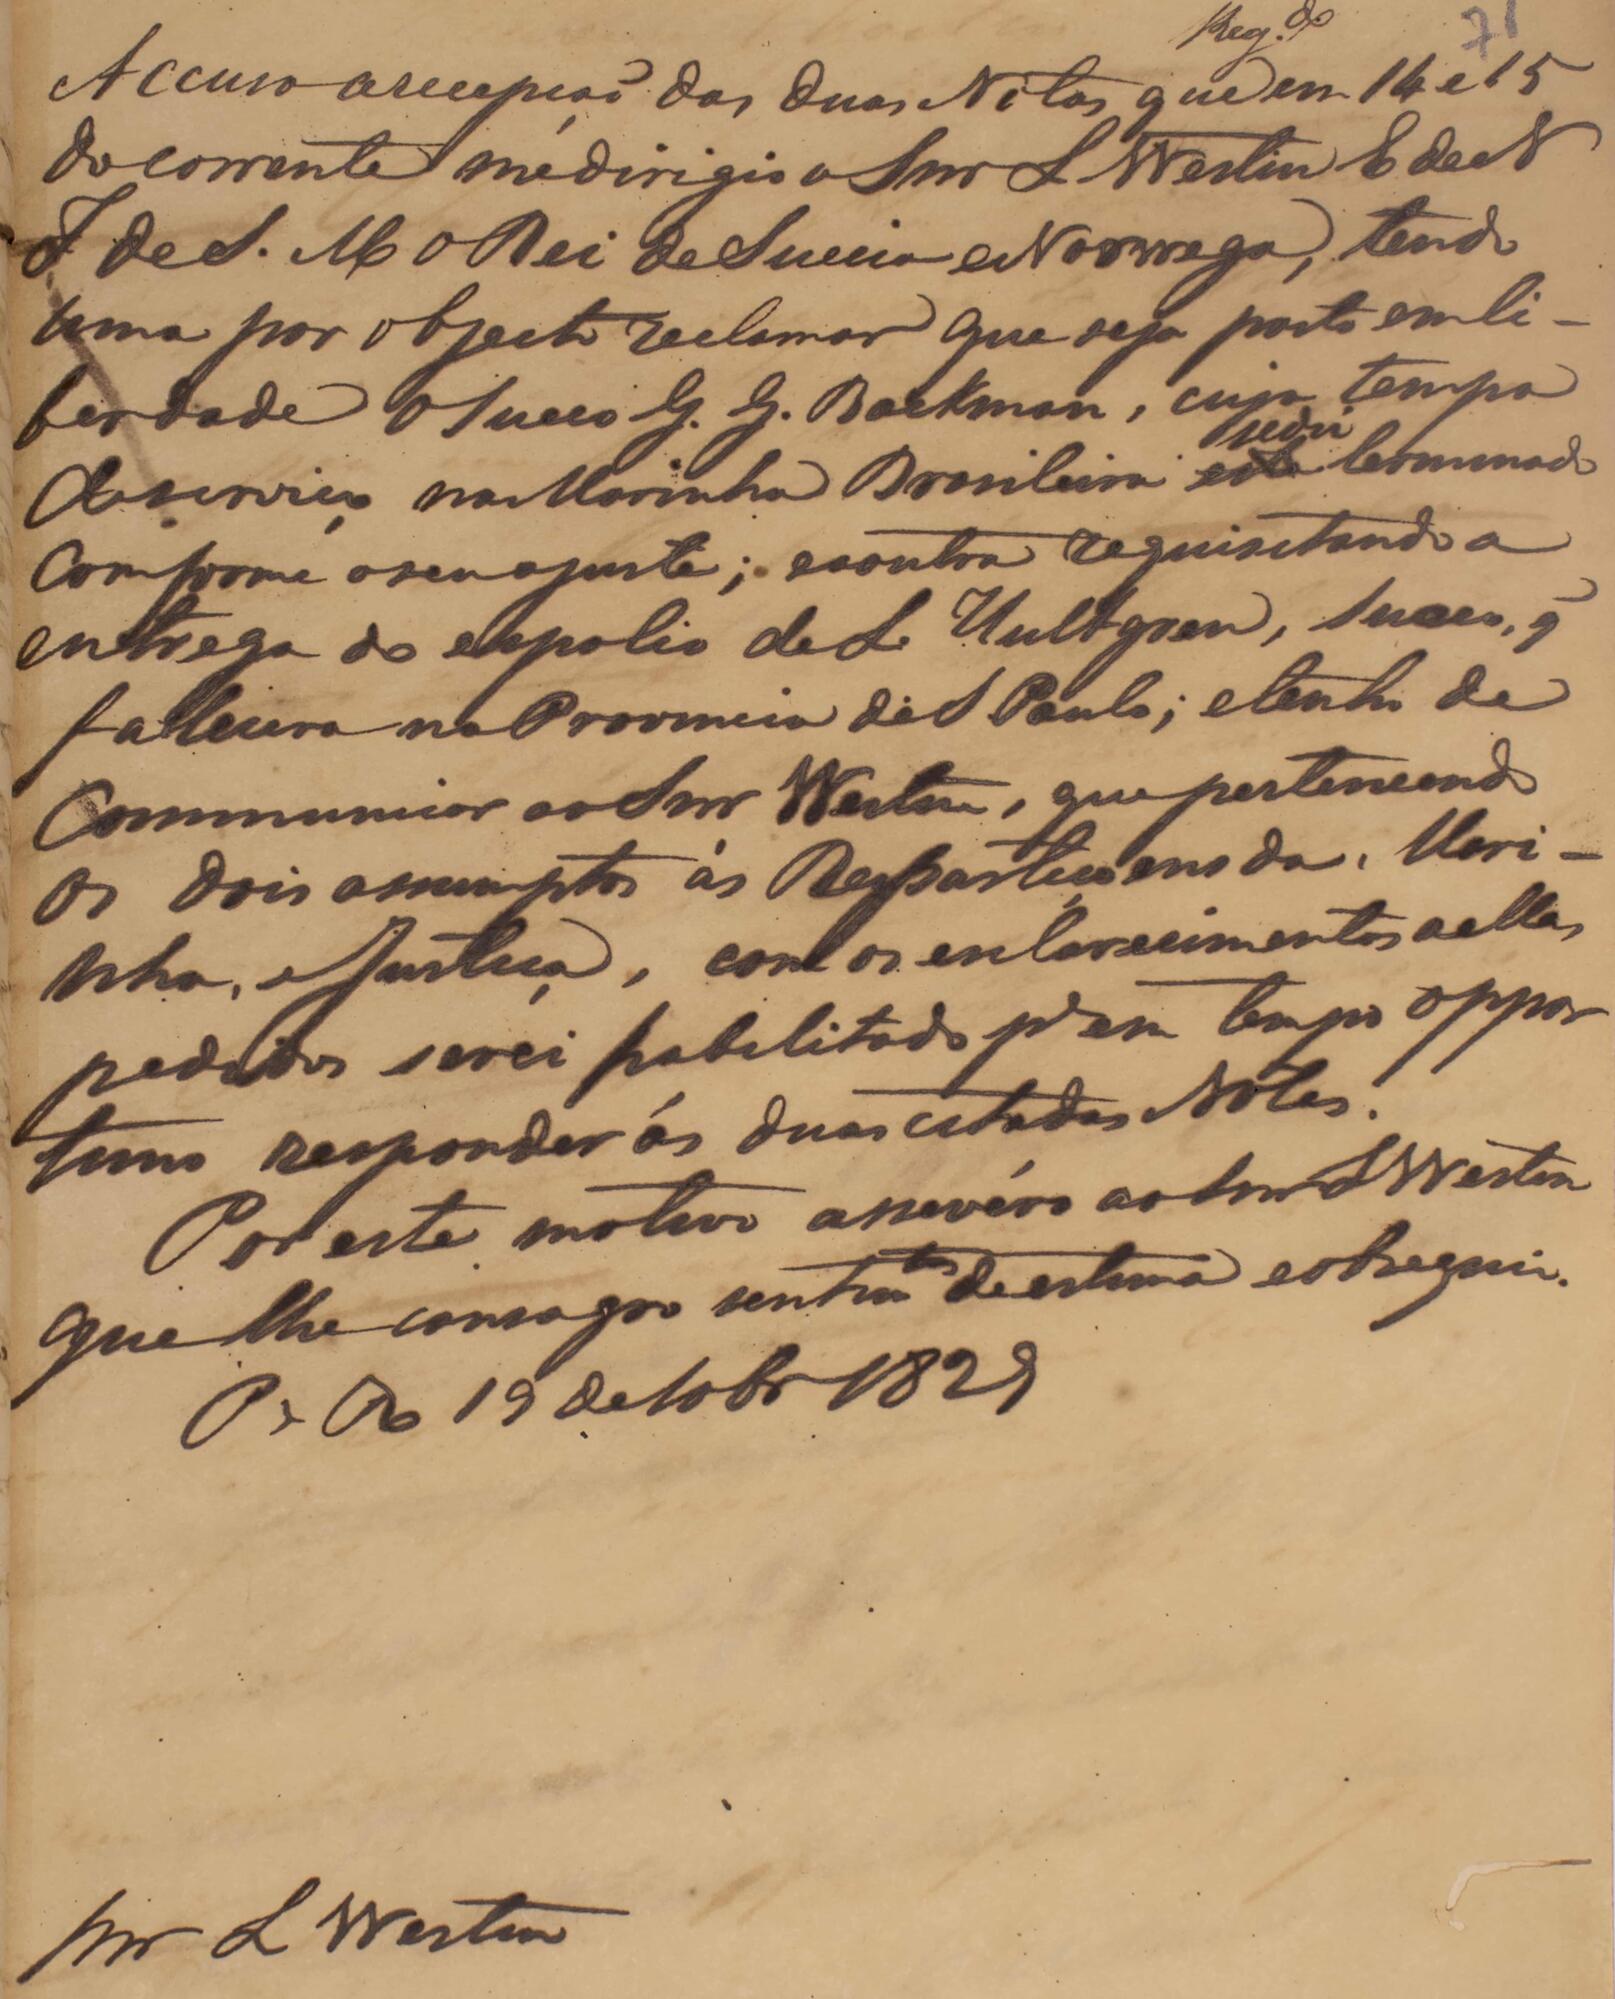 Reg.do 71
Accuso a recepção das duas Notas que em 14 e 15
do corrente me dirigio o Snr L Westin E de N
I de S. M O Rei de Suecia e Norwega, tendo
uma por objecto reclamar que seja posto em li-
berdade o Sueco G. G. Backman, cujo tempo
de serviço na Marinha Brasileira
terminado
conforme o seu ajuste; e a outra requisitando a
entrega do espolio de L Hultgren, Sueco, q̃
fallecera na Provincia de S Paulo; e tenho de
Communicar ao Snr Westin, que pertencendo
os dois assumptos ás Repartiçoens da Mari-
nha, e Justiça, com os esclarecimentos a ellas
pedidos serei habilitado pa em tempo oppor
tuno responder ás duas citadas Notas.
Por este motivo assevéro ao Snr L Westin
que lhe consagro sentimtos de estima e obsequio.
19 de 1829
Snr L Westin